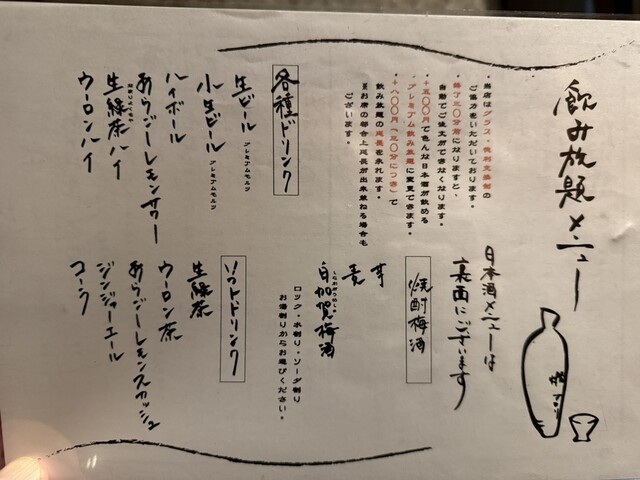 飲み放題メニュー
・当店はグラス・徳利交換制の
ご協力をいただいております。
・終了三〇分前になりますと、
自動でご注文ができなくなります。
・＋三〇〇円で色んな日本酒が飲める
プレミアム飲み放題に変更できます。
・＋八〇〇円（三〇分につき）で
飲み放題の延長を承れます。
※お席の都合上延長が出来兼ねる場合も
ございます。
各種ドリンク
生ビール プレミアムモルツ
小生ビール プレミアムモルツ
ハイボール
あらごーレモンサワー
生緑茶ハイ
ウーロンハイ
日本酒メニューは
裏面にございます
焼酎梅酒
芋
麦
白加賀梅酒
ロック・水割り・ソーダ割り
お湯割りからお選びください。
ソフトドリンク
生緑茶
ウーロン茶
あらごーレモンスカッシュ
ジンジャーエール
コーラ